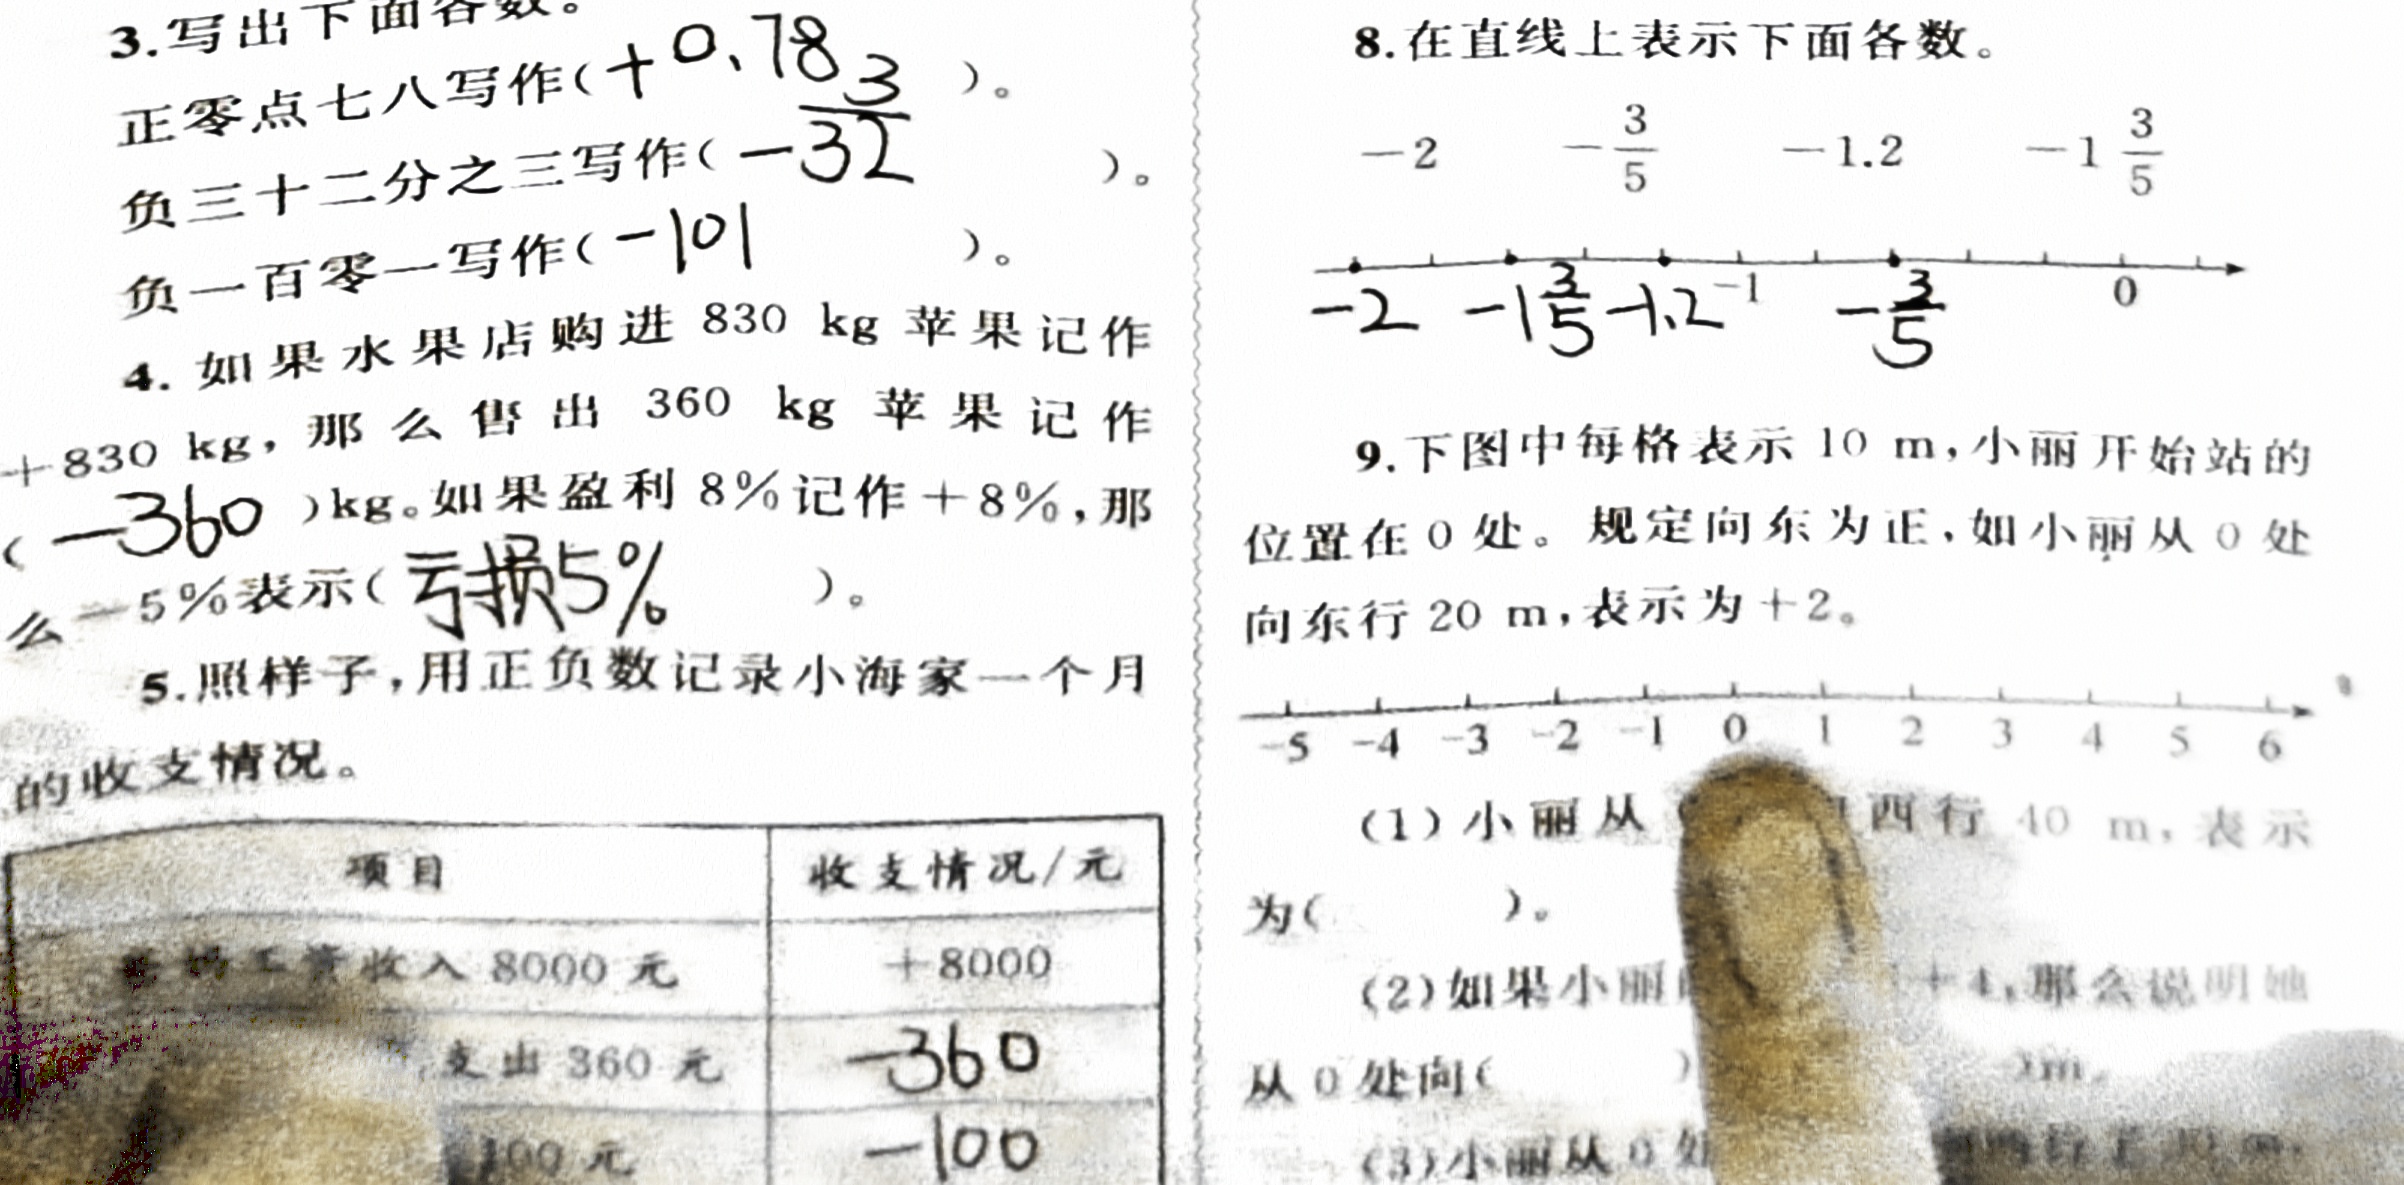 3.写出下面各数。
正零点七八写作(+0.78)。
负三十二分之三写作(-3/32)。
负一百零一写作(-101)。
4.如果水果店购进 830 kg 苹果记作
+830 kg,那么售出 360 kg 苹果记作
(-360)kg。如果盈利 8%记作+8%,那
么-5%表示(亏损5%)。
5.照样子,用正负数记录小海家一个月
的收支情况。
项目 收支情况/元
工资收入 8000 元 +8000
支出 360 元 -360
100 元 -100
8.在直线上表示下面各数。
-2 -3/5 -1.2 -1 3/5
-1 0
-2 -1 3/5 -1.2 -3/5
9.下图中每格表示 10 m,小丽开始站的
位置在 0 处。规定向东为正,如小丽从 0 处
向东行 20 m,表示为+2。
-5 -4 -3 -2 -1 0 1 2 3 4 5 6
(1)小丽从 西行 40 m,表示
为( )。
(2)如果小丽 +4,那么说明她
从 0 处向( ) )m。
(3)小丽从 0 处